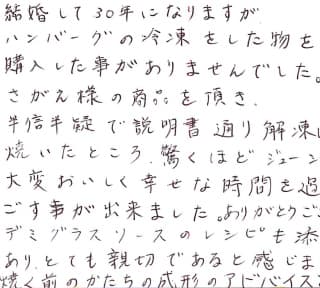 結婚して30年になりますが
ハンバーグの冷凍をした物を
購入した事がありませんでした。
さがえ様の商品を頂き、
半信半疑で説明書通り解凍し
焼いたところ、驚くほどジューシー
大変おいしく幸せな時間を過
ごす事が出来ました。ありがとうご
デミグラスソースのレシピも添
あり、とても親切であると感じま
焼く前のかたちの成形のアドバイス